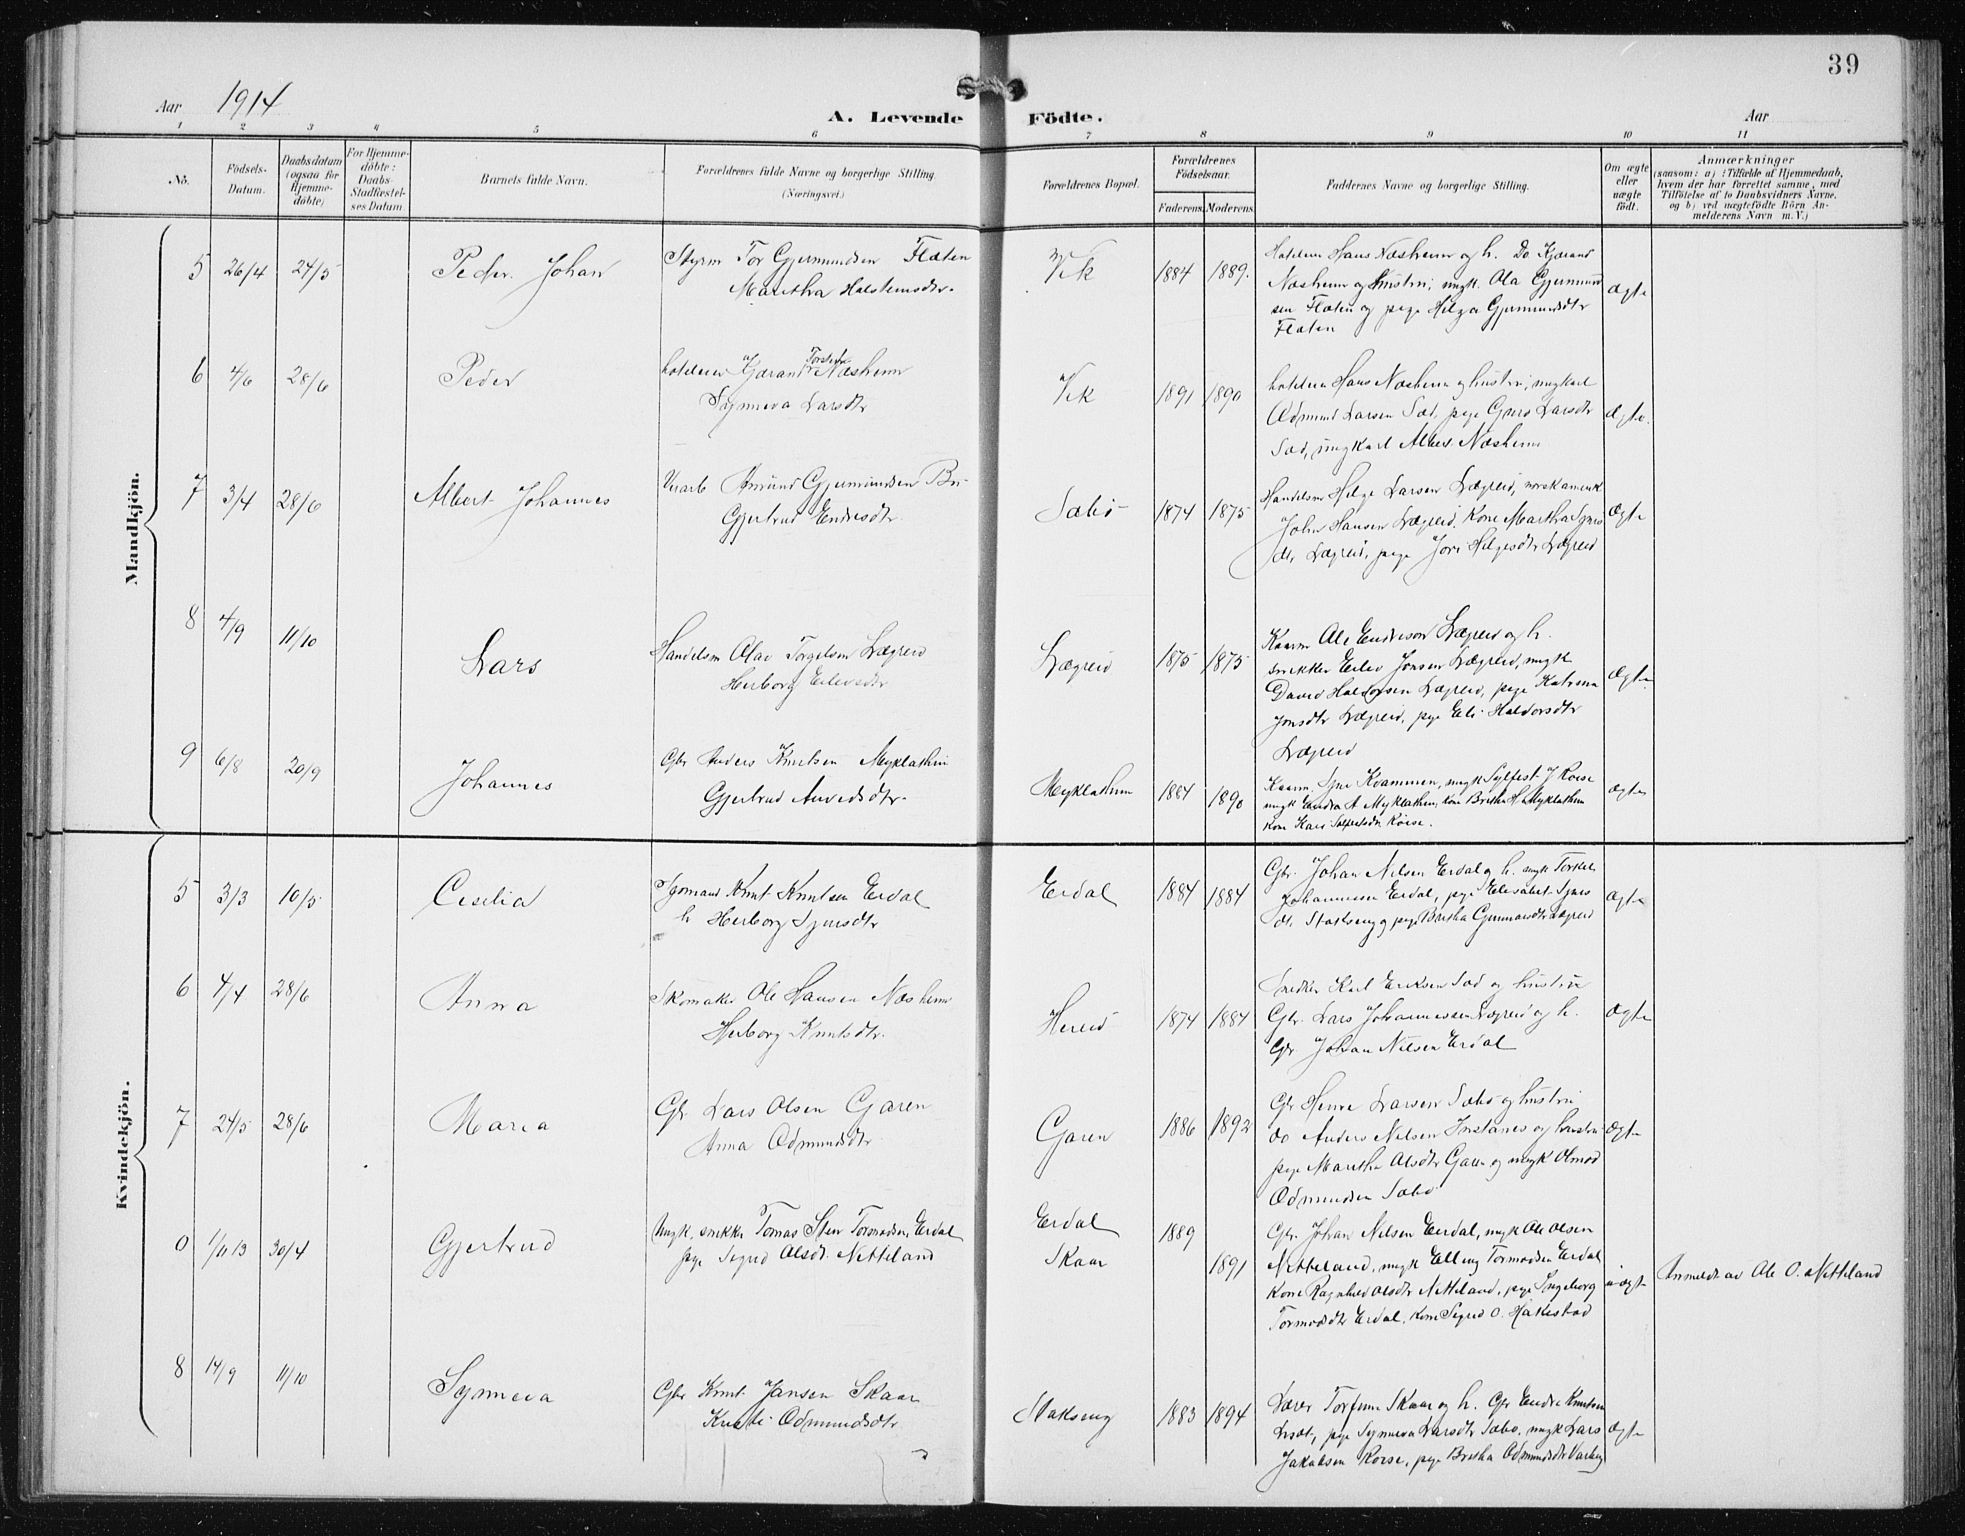 39
Aar 1914
A. Levende Födte.
Aar
1 2 3 4 5 6 7 8 9 10 11
No.
Födsels-Datum.
Daabsdatum (ogsaa for Hjemmedöbte)
For Hjemmedöbte: Daabs-Stadfæstelses Datum.
Barnets fulde Navn.
Forældrenes fulde Navne og borgerlige Stilling (Næringsvei)
Forældrenes Bopæl.
Forældrenes Födselsaar.
Faderens. Moderens.
Faddernes Navne og borgerlige Stilling.
Om ægte eller uægte födt.
Anmærkninger
(saasom: a) Tilfælde af Hjemmedaab,
hvem der har forrettet samme, med
Tilföielse af to Daabsvidners Navne,
og b) ved uægtefödte Börn An-
melderens Navn m. V.)
Mandkjön.
5 26/4 24/5 Peder Johan
Styrm Tor Gjermundsen Flæten
Martha Halstensdtr.
Vik 1884 1889.
Hans Næsheim og h. Do Kjærand
Næsheim og hustru, ungk. Ola Gjermund
sen Flæten og pige Helga Gjermundsdtr
Flæten
ægte
6 4/6 28/6 Peder
Kjærand Næsheim
Synneva Larsdtr
Vik 1891 1890
Hans Næsheim og hustru, ungkarl
Odmund Larsen Sæd, pige Guro Larsdtr
Sæd, ungkarl Næsheim
ægte.
7 3/4 28/6 Albert Johannes
Amund Gjermundsen Bu
Gjertrud Endresdtr.
Sæbö 1874 1875
Handelsm Helge Larsen Lægreid, norskamerik
John Hansen Lægreid, Kone Martha Sjurs
dtr Lægreid, pige Jori Helgesdtr Lægreid
ægte
8 4/9 11/10 Lars
Handelsm Olav Torgilsen Lægreid
Herborg Eilevsdtr
Lægreid 1875 1875
Kaarm Ole Endreson Lægreid og h.
snikker Eilev Jonsen Lægreid, ungk
David Haldorsen Lægreid, pige Katrina
Jonsdtr Lægreid, pige Eli Haldorsdtr
Lægreid
ægte
9 6/8 20/9 Johannes
Gbr Anders Knutsen Myklathun
Gjertrud Anvedsdtr.
Myklathun 1884 1890
Kaarm. Sjur Kvammen, ungk Sylfest J Röise
ungk Endre A Myklathun, kone Britha H Myklathun
kone Kari Röise.
ægte
Kvindekjön.
5 3/3 10/5 Cecilia
Knut Knutsen Eidal
h Herborg Sjursdtr
Erdal 1884 1884
Gbr. Johan Nilsen Erdal og h. ungk Torkel
Johannessen Erdal, pige Elisabet Sjurs
dtr. Stakseng og pige Britha Gunnarsdtr Lægreid
ægte
6 4/4 28/6 Anna
Skomaker Ole Hansen Næsheim
Herborg Knutsdtr.
Hereid 1874 1884
Snedker Karl Eriksen Sæd og hustru
Gbr. Lars Johannessen Lægreid og h.
Gbr Johan Nilsen Erdal
ægte
7 24/5 28/6 Maria
Gbr Lars Olsen Garen
Anna Odmundsdtr
Garen 1886 1892
Gbr Larsen Sæbö og hustru
do Anders Nilsen Instanes og hustru
pige Martha Olsdtr Garen og ungk Olmod
Odmundsen Sæbö
ægte
0 1/11 13 30/4 Gjertrud
Ungk, snikker Tomas Sten Tormodsen Erdal
pige Sigrid Olsdtr. Netteland
Erdal
Skaar
1889
1891
Gbr. Johan Nilsen Eerdal, ungk Ole Olsen
Netteland, ungk Elling Tormodsen Erdal
Kone Ragnhild Olsdtr Netteland, pige Ingeborg
Tormodsdtr Erdal, kone Sigrid O. Hakestad
uægte
Anmeldt av Ole O. Netteland
8 14/9 11/10 Synneva
Gbr Knut Jansen Skaar
Kristi Odmundsdtr
Stakseng 1883 1894
Lærer Torfinn Skaar og h. Gbr Endre Knutsen
pige Synneva Larsdtr Sæbö, ungk Lars
Jakobsen Röise, pige Britha Odmundsdtr Varberg
ægte